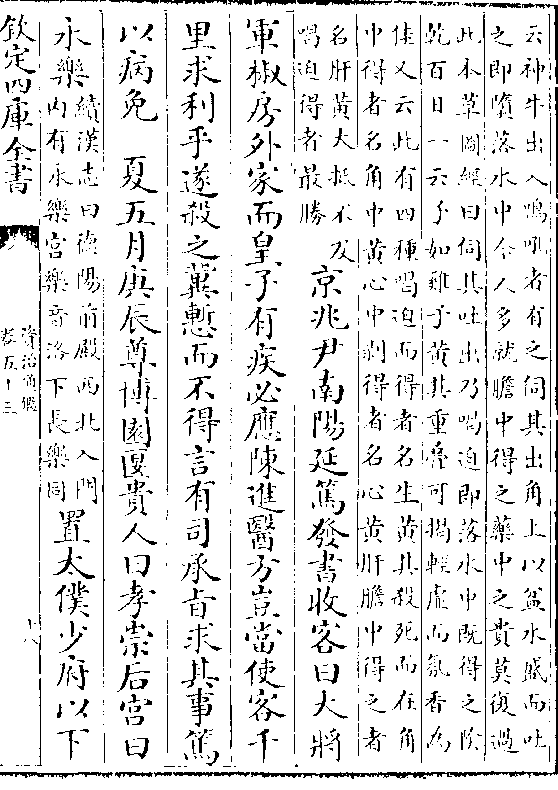 云神牛出入鳴吼者有之伺其出角上以盆水盛而吐
之即墮落水中今人多就膽中得之藥中之貴莫復過
此本草圖經曰伺其吐出乃喝迫即落水中既得之隂
乾百日一云子如雞子黄其重疊可揭輕虛而氛香為
佳又云此有四種喝迫而得者名生黄其殺死而在角
中得者名角中黄心中剥得者名心黄肝膽中得之者
名肝黄大抵不及
喝迫得者最勝
京兆尹南陽延篤發書收客曰大將
軍椒房外家而皇子有疾必應陳進醫方豈當使客千
里求利乎遂殺之冀慙而不得言有司承旨求其事篤
以病免　夏五月庚辰尊博園匽貴人曰孝崇后宫曰
永樂
續漢志曰德陽前殿西北入門
内有永樂宫樂音洛下長樂同
置太僕少府以下
欽定四庫全書
資治通鑑
卷五十三
十八